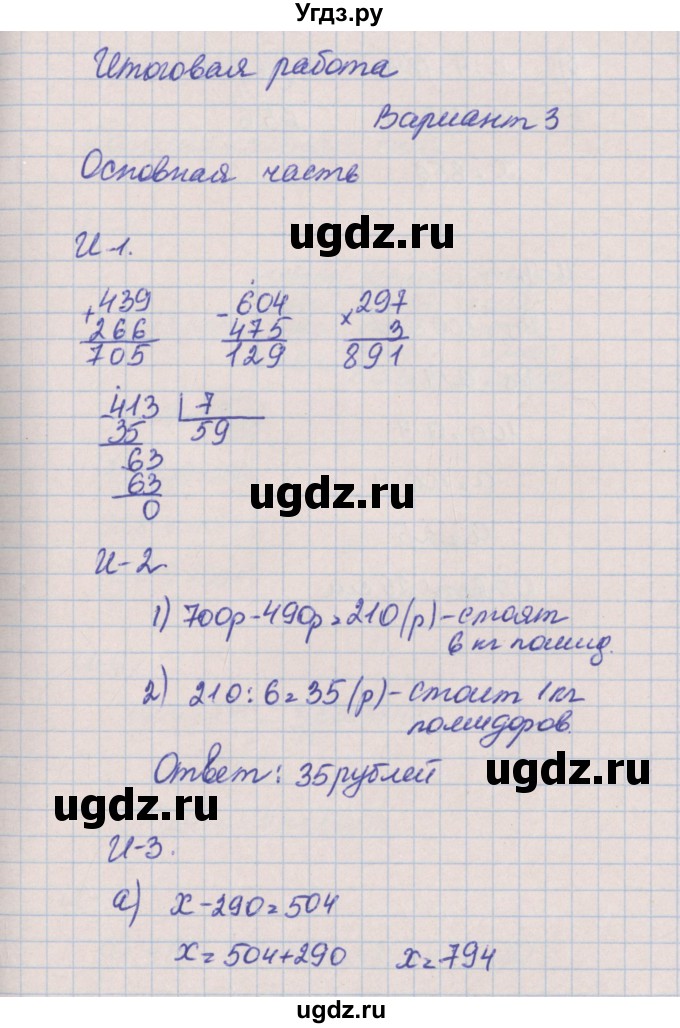 Угдз.ру
Итоговая работа
Вариант 3
Основная часть
И-1.
ugdz.ru
+439
266
705
-604
475
129
x 297
3
891
-413 | 7
35 59
63
63
0
ugdz.ru
И-2.
1) 700р-490р=210(р)-стоят
6 кг помид.
2) 210:6=35(р)-стоит 1кг
помидоров.
Ответ: 35 рублей
ugdz.ru
ugdz.ru
И-3.
а) x-290=504
x=504+290 x=794
ugdz.ru